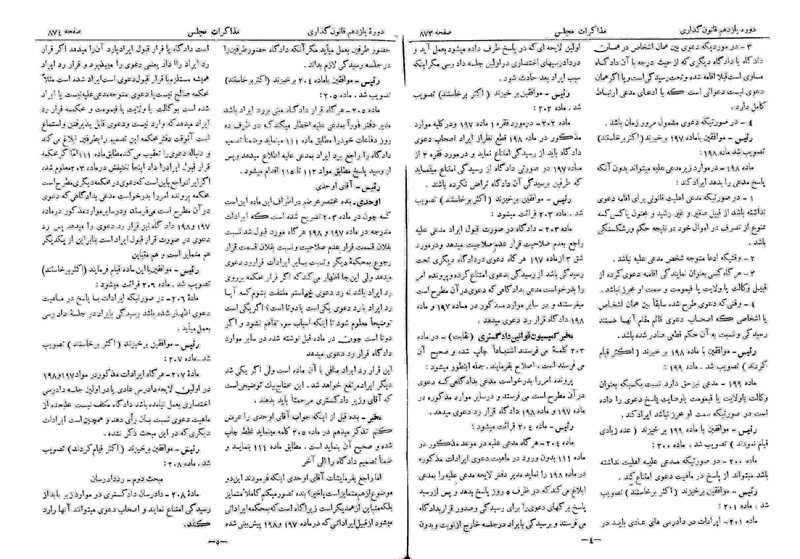 دوره یازدهم قانون‌گذاری
مذاکرات مجلس
صفحه ۸۷۳
۳ - در موردیکه دعوی بین همان اشخاص در همان
دادگاه یا دادگاه دیگری که از حیث درجه با آن دادگاه
مساوی است قبلا اقامه شده و تحت رسیدگی است و یا اگر همان
دعوی نیست دعوائی است که با ادعای مدعی ارتباط
کامل دارد.
۴ - در صورتیکه دعوی مشمول مرور زمان باشد.
رئیس - موافقین با ماده ۱۹۷ برخیزند (اکثر برخاستند)
تصویب شد ماده ۱۹۸:
ماده ۱۹۸ - در موارد زیر مدعی علیه میتواند بدون آنکه
پاسخ مدعی را بدهد ایراد کند:
۱ - در صورتیکه مدعی اهلیت قانونی برای اقامه دعوی
نداشته باشد از قبیل صغیر و غیر رشید و مجنون یا کسی که
ممنوع از تصرف در اموال خود در نتیجه حکم ورشکستگی
باشد.
۲ - وقتیکه ادعا متوجه شخص مدعی علیه نباشد.
۳ - هر گاه کسی بعنوان نمایندگی اقامه دعوی کرده از
قبیل وکالت یا ولایت یا قیمومت و سمت او محرز نباشد.
۴ - وقتی که دعوی طرح شده سابقا بین همان اشخاص
یا اشخاصی که اصحاب دعوی قائم مقام آنها هستند
رسیدگی و نسبت به آن حکم قطعی صادر شده باشد.
رئیس - موافقین با ماده ۱۹۸ برخیزند (اکثر قیام
نمودند) تصویب شد. ماده ۱۹۹:
ماده ۱۹۹ - مدعی نیز حق دارد نسبت بکسیکه بعنوان
وکالت یا ولایت یا قیمومت یا وصایت پاسخ دعوی را داده
است در صورتیکه سمت او محرز نباشد ایراد کند.
رئیس - موافقین با ماده ۱۹۹ برخیزند (عده زیادی
قیام نمودند) تصویب شد. ماده ۲۰۰:
ماده ۲۰۰ - در صورتیکه مدعی علیه اهلیت نداشته
باشد میتواند از پاسخ در ماهیت دعوی امتناع نماید.
رئیس - موافقین با ماده ۲۰۰ برخیزند (اکثر برخاستند) تصویب
شد. ماده ۲۰۱:
ماده ۲۰۱ - ایرادات در دادرسی های عادی باید در
اولین لایحه‌ای که در پاسخ طرف داده میشود بعمل آید و
در دادرسیهای اختصاری در اولین جلسه دادرسی مگر اینکه
سبب ایراد بعد حادث شود.
رئیس - موافقین برخیزند (اکثر برخاستند) تصویب
شد. ماده ۲۰۲:
ماده ۲۰۲ - در مورد فقره ۱ ماده ۱۹۷ و در کلیه موارد
مذکور در ماده ۱۹۸ قطع نظر از ایراد اصحاب دعوی
دادگاه باید از رسیدگی امتناع نماید و در مورد فقره ۲ از
ماده ۱۹۷ در صورتی دادگاه از رسیدگی امتناع مینماید
که طرفین برسیدگی آن دادگاه تراضی نکرده باشند.
رئیس - موافقین با ماده ۲۰۲ برخیزند (اکثر برخاستند) تصویب
شد. ماده ۲۰۳ قرائت میشود:
ماده ۲۰۳ - در صورت قبول ایراد مدعی علیه
راجع بعدم صلاحیت قرار عدم صلاحیت میدهد و در مورد
شق ۳ از ماده ۱۹۷ هر گاه دعوی در دادگاه دیگری تحت
رسیدگی باشد از رسیدگی بدعوی امتناع کرده و پرونده امر
را بدرخواست مدعی بدادگاهی که دعوی در آن مطرح است
میفرستد و در سایر موارد مذکور در ماده ۱۹۷ و ماده
۱۹۸ دادگاه قرار رد دعوی میدهد.
مخبر کمیسیون قوانین دادگستری (نقابت) - در ماده
۲۰۳ کلمه می فرستند اشتباهاً چاپ شده و صحیح آن
می فرستد است. اصلاح بفرمائید. جمله اینطور میشود:
پرونده امر را بدرخواست مدعی بدادگاهی که دعوی
در آن مطرح است می فرستد و در سایر موارد مذکوره در
ماده ۱۹۷ و ۱۹۸ دادگاه قرار رد دعوی میدهد.
رئیس - ماده ۲۰۴ قرائت میشود:
ماده ۲۰۴ - هرگاه مدعی علیه در موعد مذکور در
ماده ۱۱۱ بدون ورود در ماهیت دعوی ایرادات مذکوره
ماده ۱۹۸ را نماید مدیر دفتر لایحه مدعی علیه را بمدعی
ابلاغ می‌کند که در ظرف ۵ روز پاسخ بدهد و پس از رسید
پاسخ برگهای دعوی را برای صدور قرار بدادگاه
می فرستد و رسیدگی با ایراد در جلسه خارج از نوبت و بدون
- ۴ -
دوره یازدهم قانون گذاری
مذاکرات مجلس
صفحه ۸۷۴
حضور طرفین بعمل میآید مگر آنکه دادگاه حضور طرفین را
در جلسه رسیدگی لازم بداند.
رئیس - موافقین با ماده ۲۰۴ برخیزند (اکثر برخاستند)
تصویب شد. ماده ۲۰۵:
ماده ۲۰۵ - هر گاه قرار دادگاه مبنی برد ایراد باشد
مدیر دفتر فوراً بمدعی علیه اخطار میکند که در ظرف ده
روز دفاعیات خود را مطابق ماده ۱۱۱ بنماید و ضمناً تصمیم
دادگاه را راجع برد ایراد بمدعی علیه اطلاع میدهد و پس
از رسید پاسخ مطابق مواد ۱۱۳ تا ۱۱۵ اقدام میشود.
رئیس - آقای اوحدی
اوحدی - بنده مختصر عرضم در اطراف این ماده این است
که چون در ماده ۲۰۳ تصریح شده است که ایرادات
مندرجه در ماده ۱۹۷ و ۱۹۸ هرگاه مورد قبول شد نسبت
بفلان قسمت قرار عدم صلاحیت و نسبت بفلان قسمت قرار
رجوع به محکمهٔ دیگر و نسبت بسایر ایرادات قرار رد دعوی
میدهد ولی این جا اظهار میکند که اگر قرار محکمه بروی
رد ایراد باشد نه رد دعوی میخواستم ملتفت بشوم که آیا
رد ایراد با رد دعوی یکی است یا دو تا است؟ اگر یکی است
توضیحاً معلوم شود تا اینکه اسباب سوء تفاهم نشود و اگر
دوتا است چون در ماده قبل نوشته شده در سایر موارد
دادگاه قرار رد دعوی میدهد
این قرار رد ایراد منافی با آن ماده است ولی اگر یکی شد
دیگر ایراد مرتفع خواهد شد. این محتاج بیک توضیحی است
که آقای وزیر دادگستری مرحمتاً باید بدهند.
مخبر - بنده قبل از اینکه جواب آقای اوحدی را عرض
کنم تذکر میدهم در ماده ۲۰۵ کلمه مینماید غلط چاپ
شده و صحیح آن بنماید است. مطابق ماده ۱۱۱ بنماید و
ضمناً تصمیم دادگاه را الی آخر
اما راجع بفرمایشات آقای اوحدی اینکه فرمودند این دو
موضوع از هم متمایز است یا خیر؟ بنده تصور میکنم کاملا متمایز
بلکه متباین از هم دیگر است زیرا گاه است که بمحکمه ایرادی
میشود از قبیل ایراداتی که در ماده ۱۹۷ و ۱۹۸ پیش‌بینی شده
است دادگاه یا قرار قبول ایراد یا رد آن را میدهد اگر قرار
رد ایراد را داد یعنی دعوی را میپذیرد و قرار رد ایراد
همیشه مستلزم با قرار قبول دعوی است ایراد شده است مثلا
محکمه صالح نیست یا دعوی متوجه مدعی علیه نیست یا ایراد
شده است بوکالت یا ولایت یا قیمومت و محکمه قرار رد
ایراد میدهد که وارد نیست و دعوی قابل پذیرفتن و استماع
است آنوقت دفتر محکمه این تصمیم را بطرفین ابلاغ می‌کند
و دنباله دعوی را تعقیب می‌کند مطابق ماده ۱۱۱ اما اگر محکمه
قرار قبول ایراد را داد اینجا تکلیفش در ماده ۲۰۳ معلوم شده،
اگر ایراد راجع باین است که دعوی در محکمه دیگری مطرح است
محکمه پرونده امر را بدرخواست مدعی بدادگاهی که دعوی
در آن مطرح است میفرستد و در سایر موارد مذکور در ماده
۱۹۷ و ۱۹۸ دادگاه نیز قرار رد دعوی میدهد. پس رد
دعوی در صورت قرار قبول ایراد است بنابر این از یکدیگر
هم متمایز است و هم متباین
رئیس - موافقین با این ماده قیام فرمایند (اکثر برخاستند)
تصویب شد. ماده ۲۰۶ قرائت میشود:
مادهٔ ۲۰۶ - در صورتیکه ایرادات با پاسخ در ماهیت
دعوی اظهار شده باشد رسیدگی بایراد در جلسهٔ دادرسی
بعمل میآید
رئیس - موافقین برخیزند (اکثر برخاستند) تصویب
شد. ماده ۲۰۷:
مادهٔ ۲۰۷ - هرگاه ایرادات مذکور در مواد ۱۹۷ و ۱۹۸
در اولین لایحه دادرسی عادی یا در اولین جلسه دادرسی
اختصاری بعمل نیامده باشد دادگاه مکلف نیست علیحده از
ماهیت دعوی نسبت بآن رأی دهد و همچنین است ایرادات
دیگری که در این مبحث ذکر نشده.
رئیس - موافقین برخیزند (اکثر قیام کردند) تصویب
شد. ماده ۲۰۸:
مبحث دوم - رد دادرسان
مادهٔ ۲۰۸ - دادرسان دادگستری در موارد زیر باید از
رسیدگی امتناع نمایند و اصحاب دعوی میتوانند آنها را رد
کنند.
- ۵ -